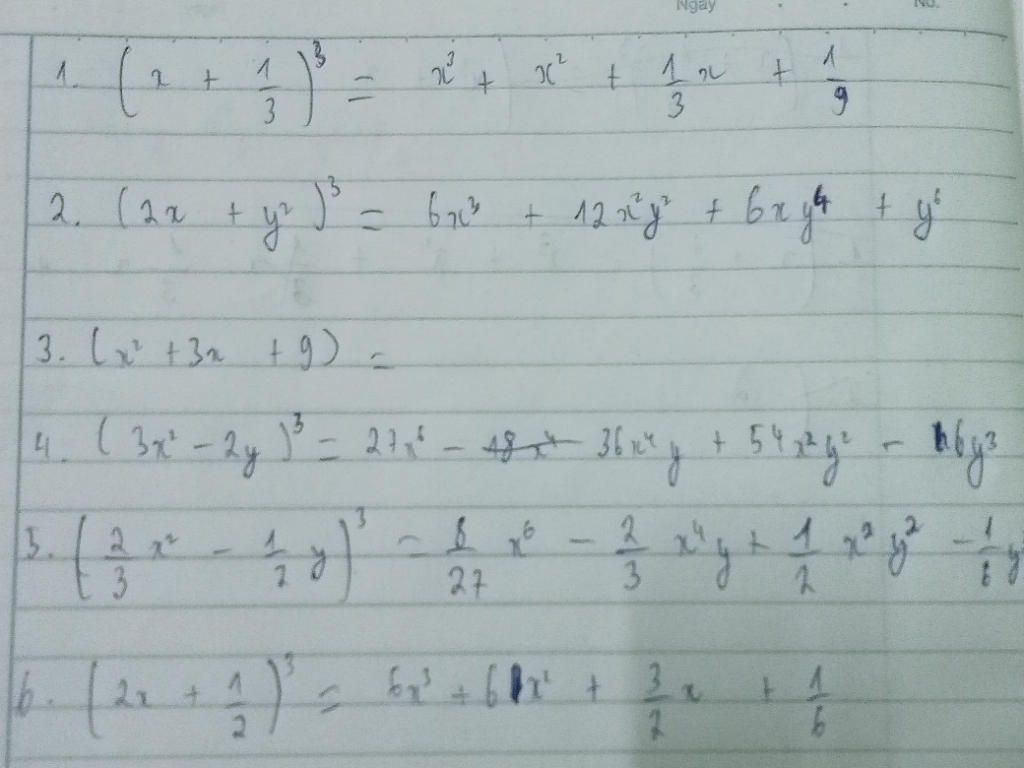 Ngày No.
1. (x + 1/3)³ = x³ + x² + 1/3 x + 1/9
2. (2x + y²)³ = 6x³ + 12x²y² + 6xy⁴ + y⁶
3. (x² + 3x + 9) =
4. (3x² - 2y)³ = 27x⁶ - 36x⁴y + 54x²y² - 6y³
5. (2/3 x² - 1/2 y)³ = 8/27 x⁶ - 2/3 x⁴y + 1/2 x²y² - 1/6 y³
6. (2x + 1/2)³ = 6x³ + 6x² + 3/2 x + 1/6